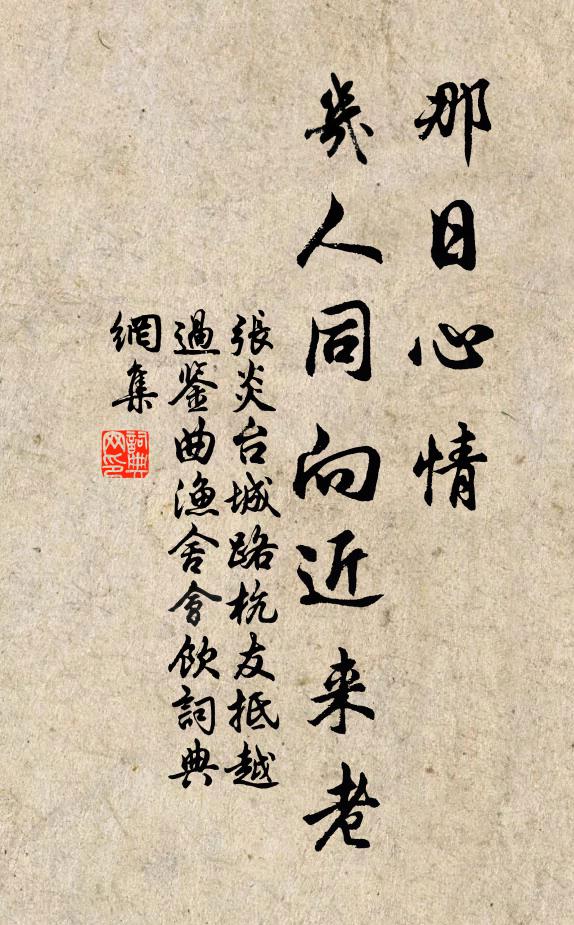 那日心情
幾人同向近来老
張炎台城路杭友抵越
過鉴曲漁舍會飲詞典
網集
詞典网印